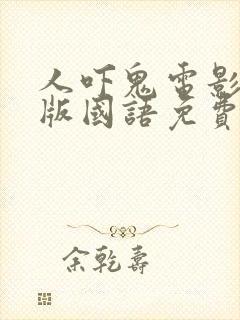 人吓鬼電影
版國語免費
余乾壽